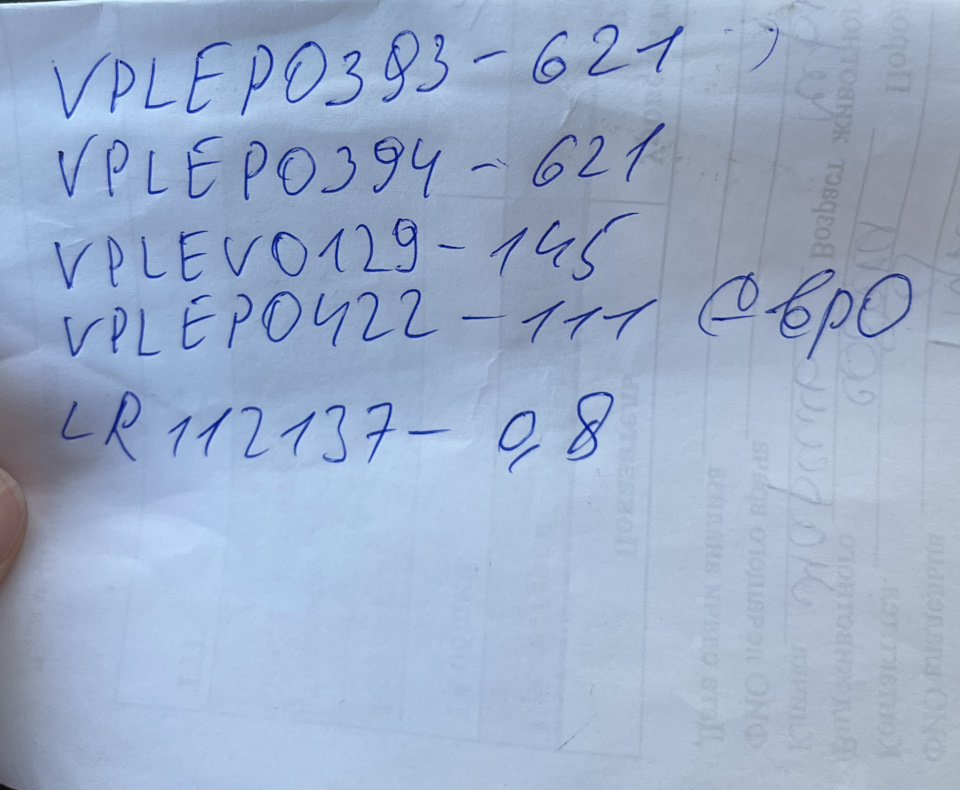 VPLEP0393 - 621
VPLEP0394 - 621
VPLEV0129 - 145
VPLEP0422 - 111 Евро
LR112137 - 0,8